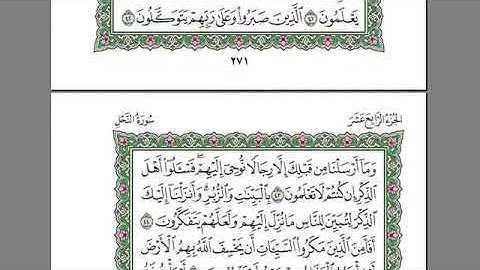 يَعْلَمُونَ ٤١ ٱلَّذِينَ صَبَرُوا۟ وَعَلَىٰ رَبِّهِمْ يَتَوَكَّلُونَ ٤٢
٢٧١
الجُزْءُ الرَّابِعَ عَشَرَ
سُورَةُ النَّحْلِ
وَمَآ أَرْسَلْنَا مِن قَبْلِكَ إِلَّا رِجَالًا نُّوحِىٓ إِلَيْهِمْ ۖ فَسْـَٔلُوٓا۟ أَهْلَ
ٱلذِّكْرِ إِن كُنتُمْ لَا تَعْلَمُونَ ٤٣ بِٱلْبَيِّنَـٰتِ وَٱلزُّبُرِ ۗ وَأَنزَلْنَآ إِلَيْكَ
ٱلذِّكْرَ لِتُبَيِّنَ لِلنَّاسِ مَا نُزِّلَ إِلَيْهِمْ وَلَعَلَّهُمْ يَتَفَكَّرُونَ ٤٤
أَفَأَمِنَ ٱلَّذِينَ مَكَرُوا۟ ٱلسَّيِّـَٔاتِ أَن يَخْسِفَ ٱللَّهُ بِهِمُ ٱلْأَرْضَ